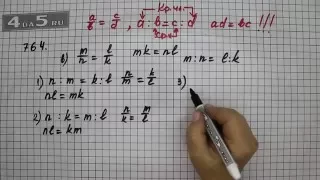 4DA5.RU
a/b = c/d , a : b = c : d ad = bc !!!
кр. чл.
ср. чл.
764.
в) m/n = l/k mk = nl m : n = l : k
1) n : m = k : l n/m = k/l 3)
nl = mk
2) n : k = m : l n/k = m/l
nl = km